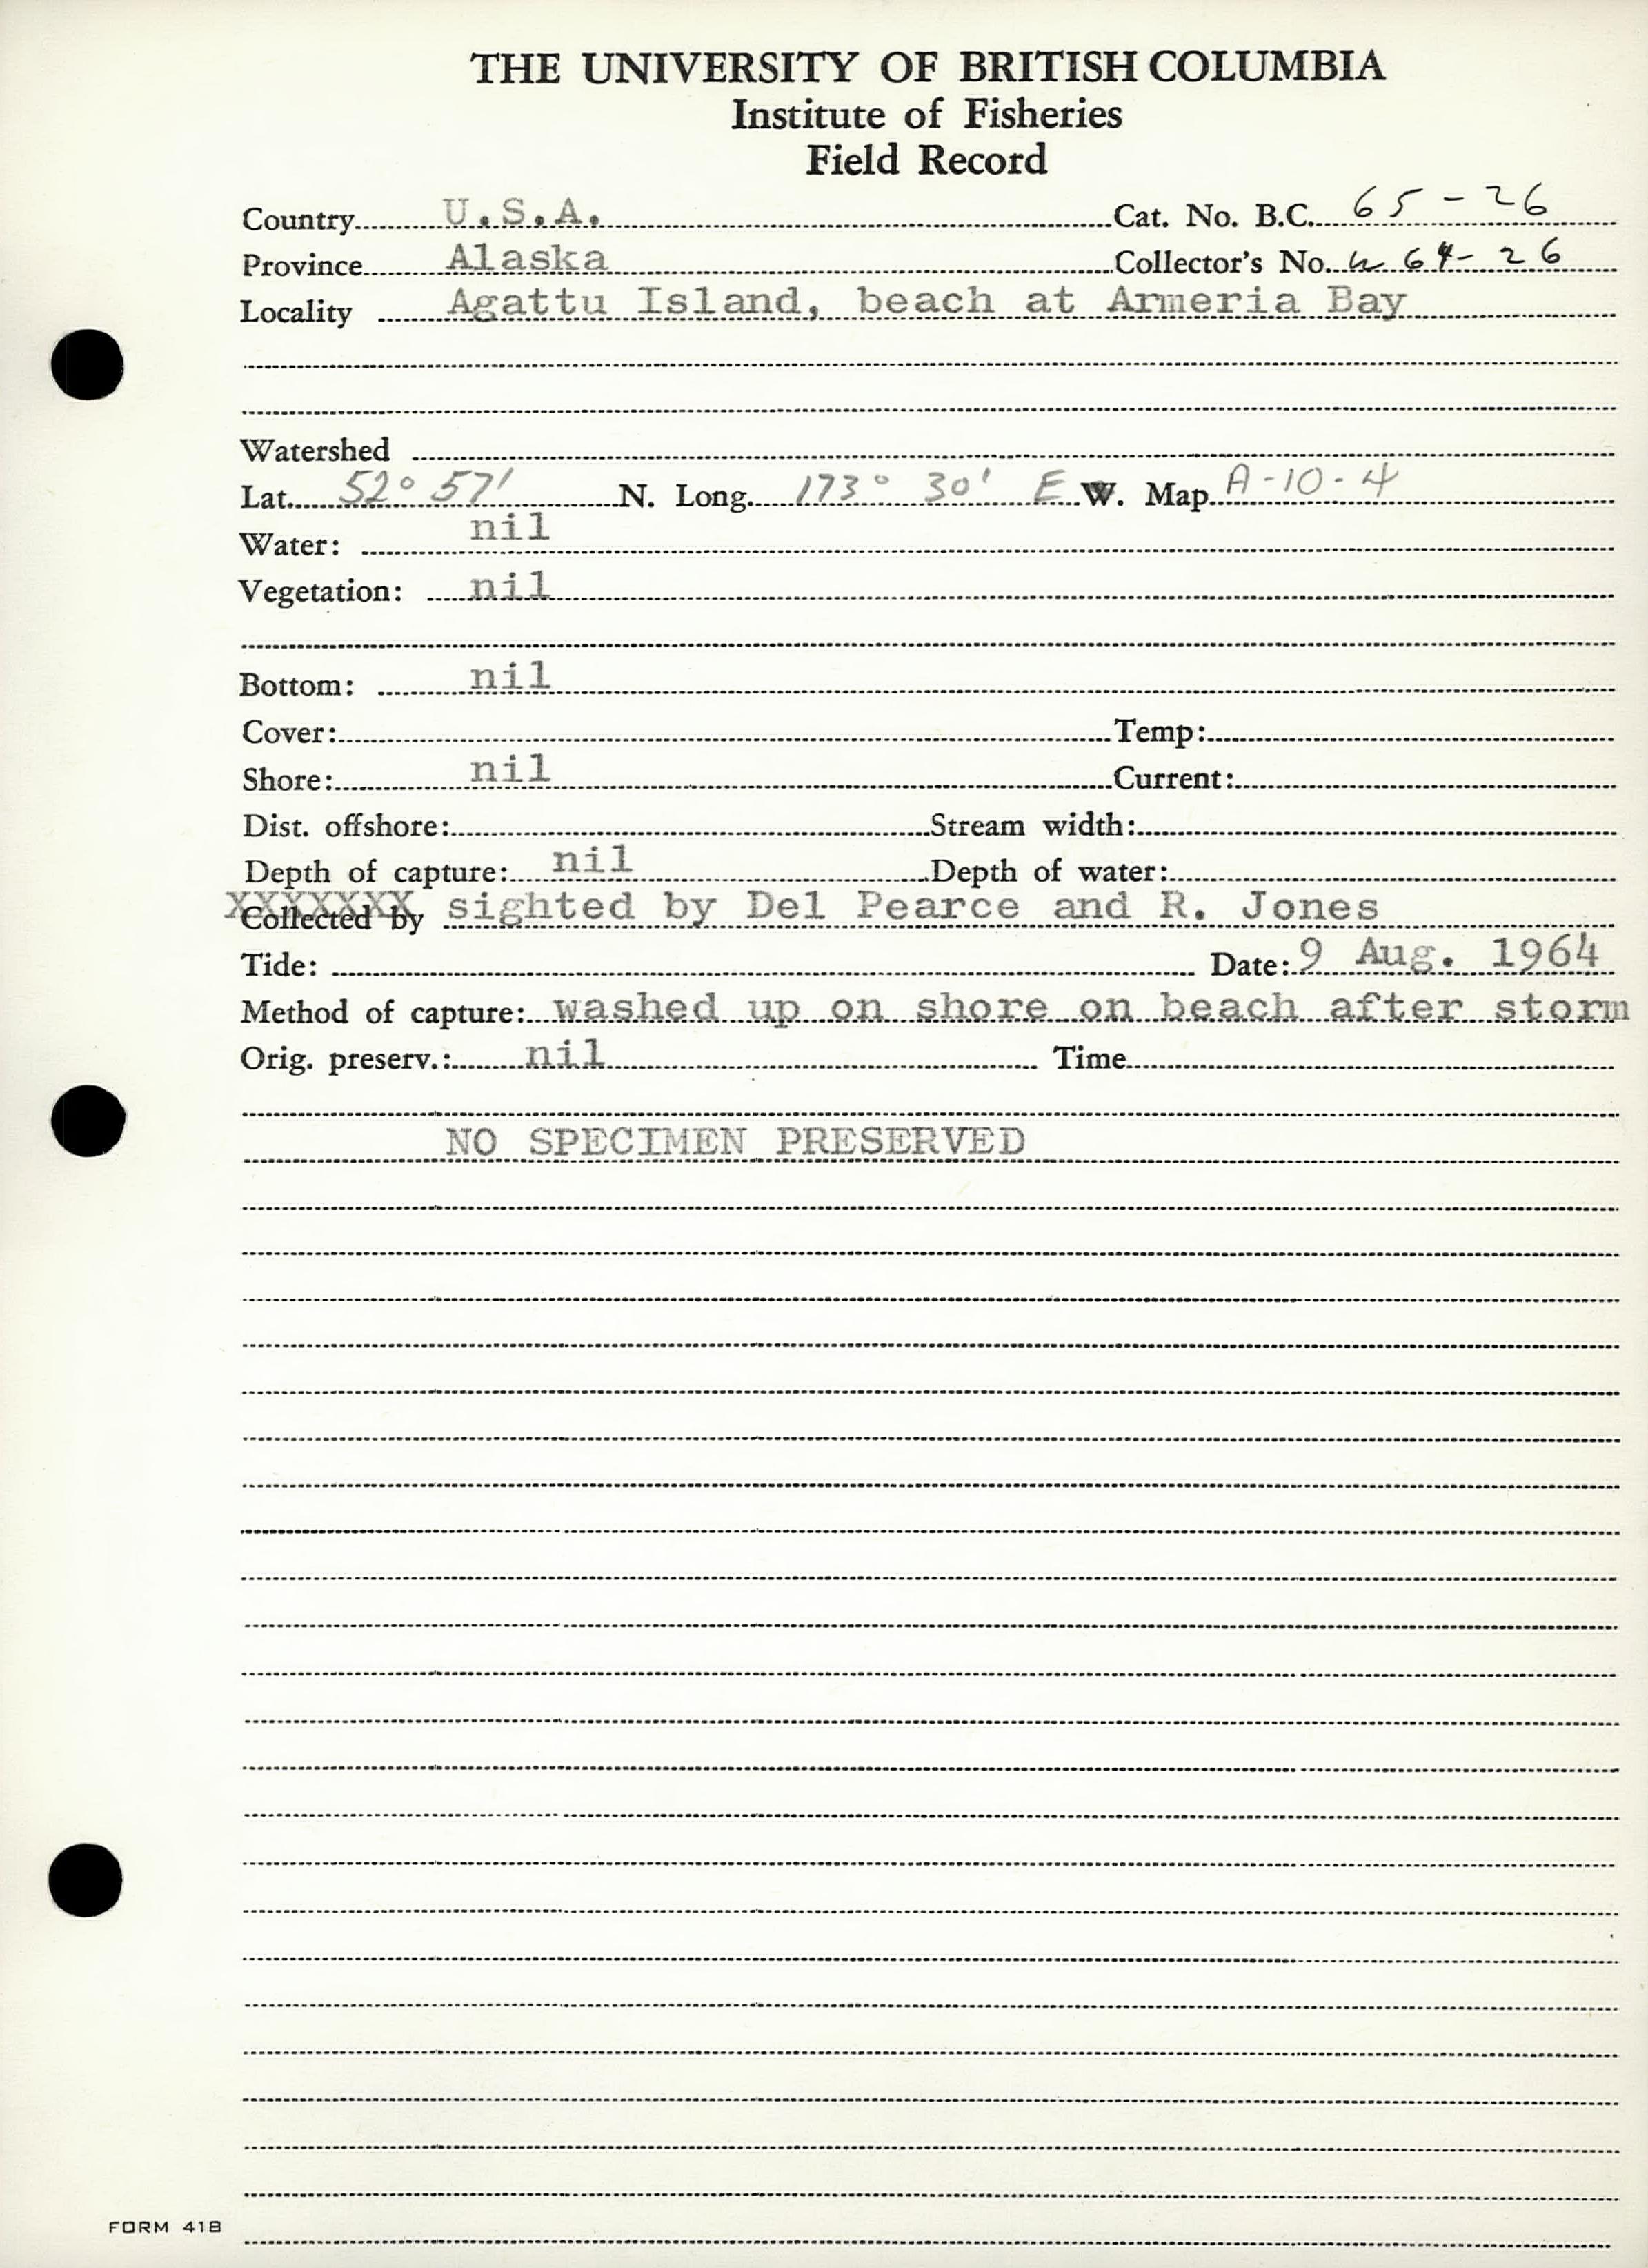 THE UNIVERSITY OF BRITISH COLUMBIA
Institute of Fisheries
Field Record
Country U.S.A. Cat. No. B.C. 65-26
Province Alaska Collector's No. W 64-26
Locality Agattu Island, beach at Armeria Bay
Watershed
Lat. 52° 57' N. Long. 173° 30' E W. Map A-10-4
Water: nil
Vegetation: nil
Bottom: nil
Cover: Temp:
Shore: nil Current:
Dist. offshore: Stream width:
Depth of capture: nil Depth of water:
Collected by sighted by Del Pearce and R. Jones
Tide: Date: 9 Aug. 1964
Method of capture: washed up on shore on beach after storm
Orig. preserv.: nil Time
NO SPECIMEN PRESERVED
FORM 41B